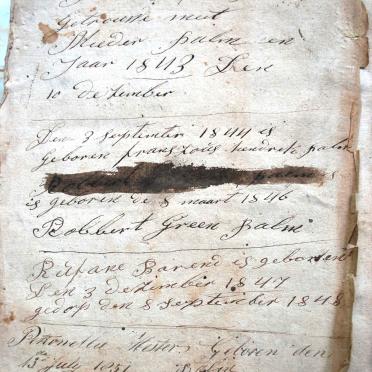 Getrouwt met
Mieder palm en
Jaar 1843 Den
10 dezember
Den 3 september 1844 is
geboren franzois hendrik palm
is
is geboren de 8 maart 1846
Robbert Green palm
Rufane Barend is geboren
Den 3 dezember 1847
gedoop den 8 september 1848
Geboren den
15 July 1851